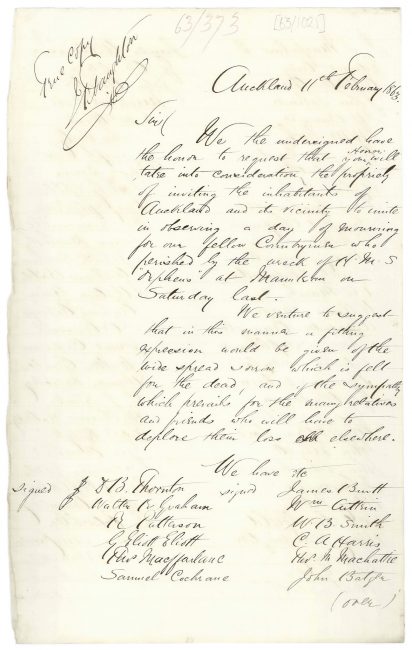 63/373 [63/1025]
True copy
J Haughton
Auckland 11th February 1863.
Sir/
We the undersigned have
the honor to request that your Honor will
take into consideration the propriety
of inviting the inhabitants of
Auckland and its vicinity to unite
in observing a day of mourning
for our fellow Countrymen who
perished by the wreck of H. M. S
Orpheus at Manukau on
Saturday last.
We venture to suggest
that in this manner a fitting
expression would be given of the
wide spread sorrow which is felt
for the dead, and of the sympathy
which prevails for the many relatives
and friends who will have to
deplore their loss elsewhere.
We have &c
signed D B. Thornton signed James Burtt
Walter Graham Wm
R Pattason W B Smith
G Eliott Eliott C A Harris
Thos Macffarlane Thos M Machattie
Samuel Cochrane John
(over)